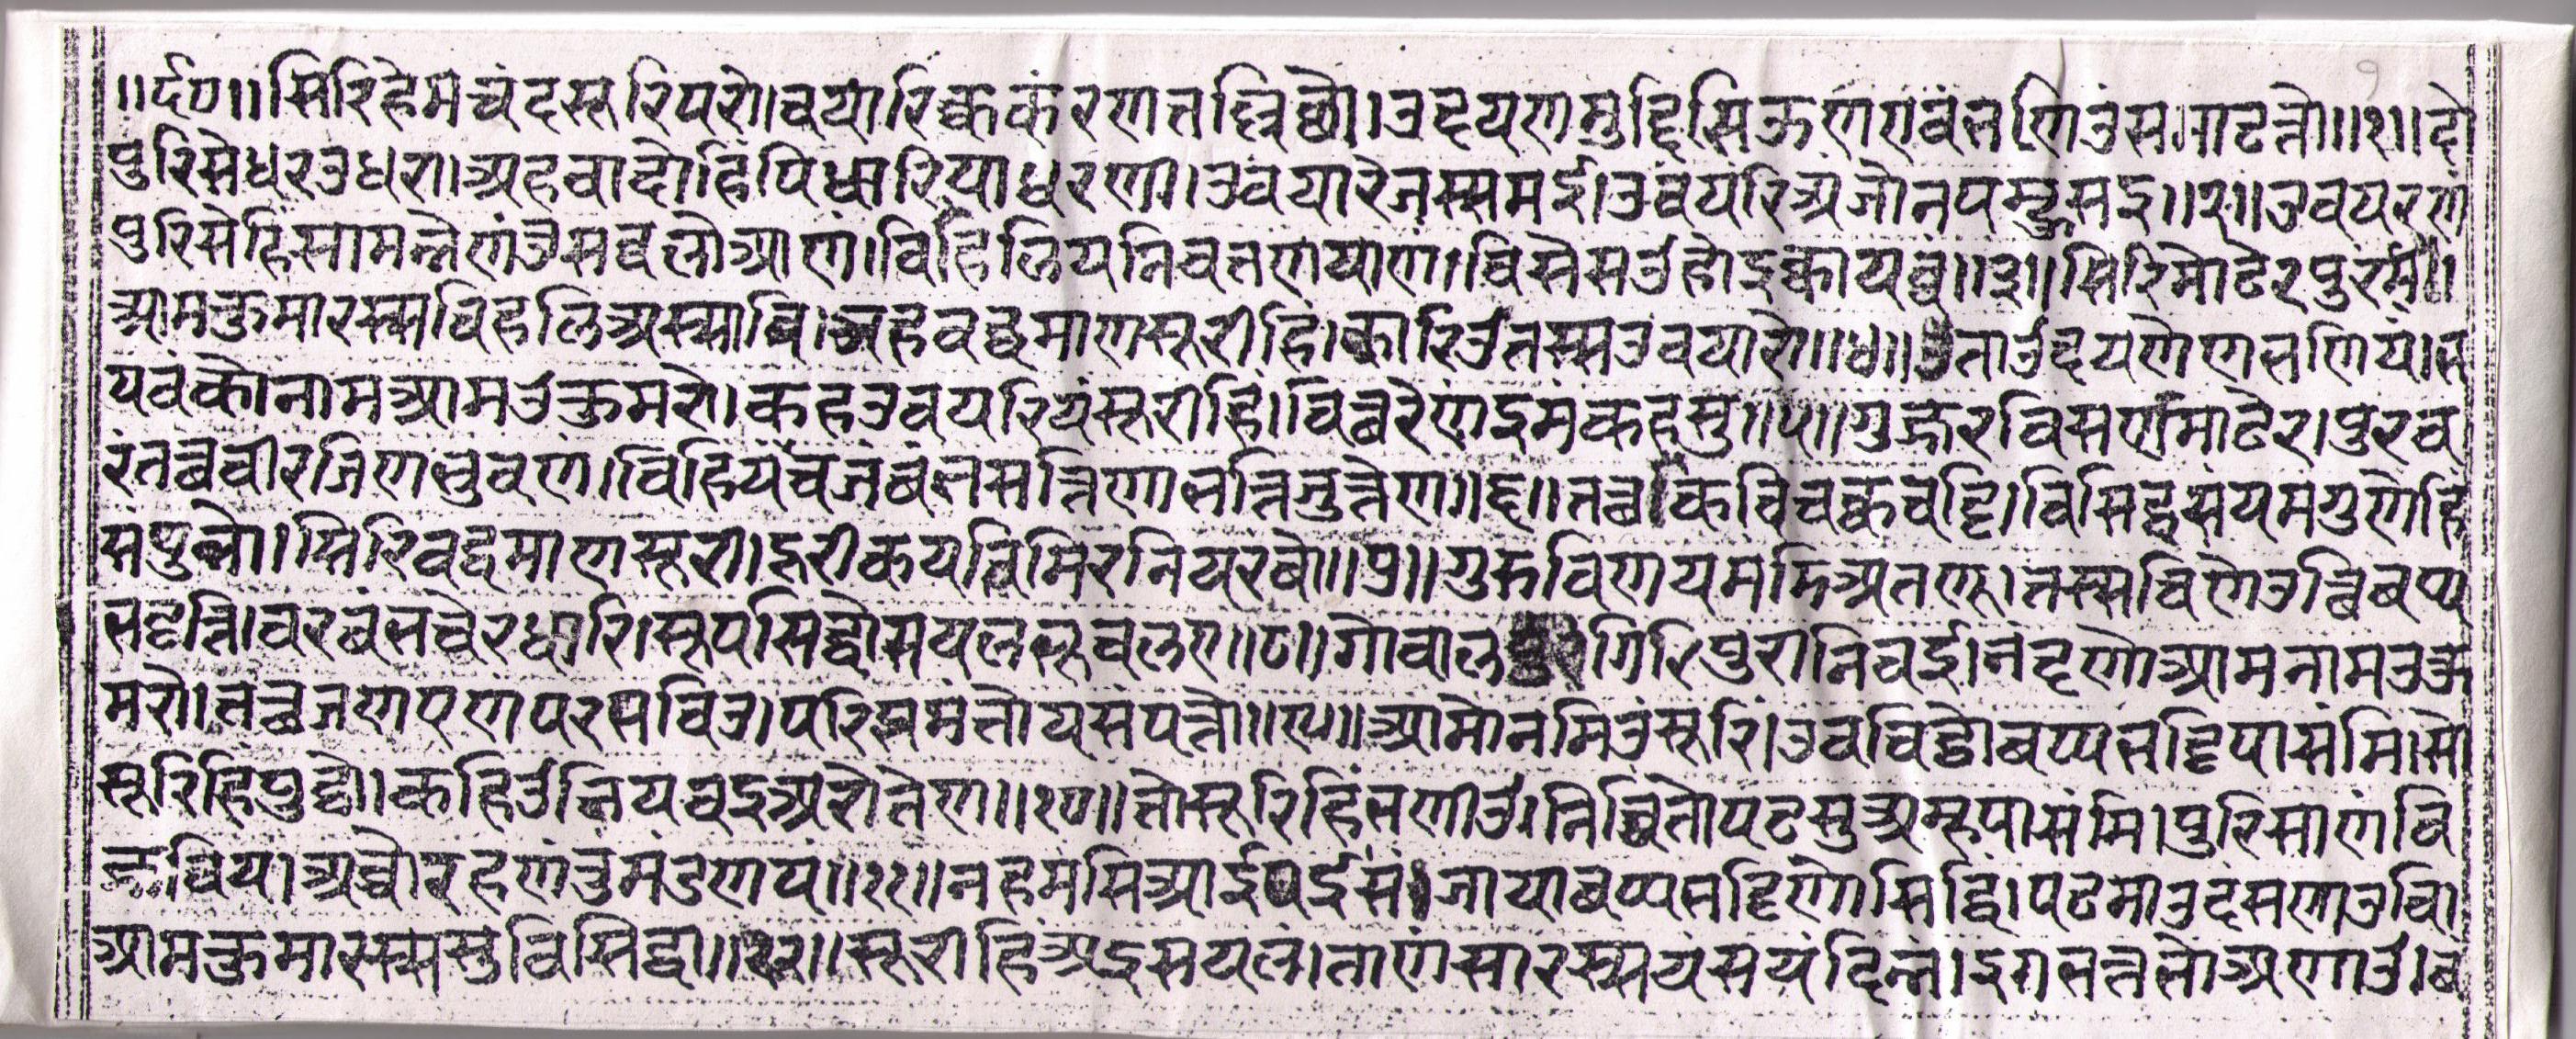 ॥र्द०॥सिरिहेमचंदसूरिपरोवयारिक्ककंरणतद्दिच्छो।उदयणमुद्दिसिऊणएवंभणिउंसमाढत्तो॥१॥दो
पुरिसेधरउधरा।अहवादोहिंपिधारियाधरणी।उवयारेजस्समई।उवयरिअंजोनपम्हुसइ॥२॥उवयरणं
पुरिसेहिंसामन्नेणंउसव्वलोआण।विहलियनिवतणयाण।विसेसउहोइकायव्वं॥३॥सिरिमोढेरपुरंमि।
आमकुमारस्सविहलिअस्सावि।अहवद्धमाणसूरीहिं।कारिउतस्सउवयारो॥४॥तोउदयणेणभणियं।भ
यवंकोनामआमउकुमरो।कहउवयरियंसूरीहिं।वित्थरेणंइमंकहसु॥५॥गुज्जरविसएमोढेर।पुरव
रंतत्थवीरजिणभुवण।विहियंचजंबंभसन्निणाभत्तिजुत्तेण॥६॥तत्थकविचक्कवट्टि।विसिट्ठसंयमगुणेहिं
संपुन्नो।सिरिवद्धमाणसूरी।दूरीकयतिमिरनियरवो॥७॥गुरुविणयममिअतणू।तस्सविणेउत्थिबप्प
भट्टित्ति।वरबंभचेरधारि।सुपसिद्धोसयलभूवलए॥८॥गोवालगिरिपुरानिवई।नंदणोआमनामउकु
मरो।तत्थजणएणंपरभविउ।परिभमंतोयसंपत्तो॥९॥आमोनमिउंसूरिं।उवविट्ठोबप्पभट्टिपासंमि।सो
सूरिहिंपुट्ठो।कहिउनियवइअरोतेण॥१०॥तोसूरिहिंभणीउ।निच्चिंतोपढसुअम्हपासंमि।पुरिसाणंवि
ज्जच्चिय।अच्चोरहणंतुमंडणयं॥११॥नहमंसिआईवईसं।जायाबप्पभट्टिणोसद्धिं।पढमाउदंसणाउवि।
आमकुमारस्ससुविसिट्ठा॥१२॥सूरीहिंअइसयलं।ताणंसारस्सयंसयंदिन्नं।इगभत्तलोअणाउ।बं